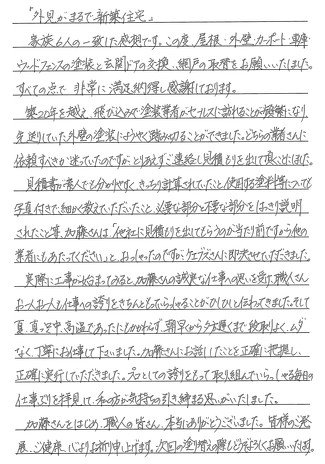 「外見がまるで新築住宅」
家族6人の一致した感想です。この度、屋根・外壁・カーポート・車庫・
ウッドフェンスの塗装と玄関ドアの交換、網戸の取替をお願いいたしました。
すべての点で非常に満足納得し感謝しております。
築20年を越え、飛び込みで塗装業者がセールスに訪れることが頻繁になり
先送りしていた外壁の塗装にようやく踏み切ることができました。どちらの業者さんに
依頼すべきか迷っていたのですが、とりあえずご連絡し見積もりを出して頂く
見積書が素人でも分かりやすく、きっちり計算されていたこと、使用する塗料等についても
写真付きで、細かく教えていただいたこと、必要な部分と不要な部分をはっきり説明
されたこと等、加藤さんは「他社に見積りを出してもらうのが当り前ですから他の
業者にもあたってください」と、おっしゃったのですが、に即決させていただきました。
実際に工事が始まってみると、加藤さんの誠実な仕事への思いを受け、職人さん
お一人お一人も仕事への誇りをきちんともっていらっしゃることがひしひしと伝わってきました。そして
夏、真っ盛り、高温であったにもかかわらず、朝早くから夕方遅くまで段取りよく、ムダ
なく、丁寧にお仕事して下さいました。加藤さんにお話ししたことを正確に把握し、
正確に実行していただきました。プロとしての誇りをもって取り組んでいらっしゃる毎日の
仕事ぶりを拝見して、私の方が気持ちの引き締まる思いがいたしました。
加藤さんをはじめ、職人の皆さん、本当にありがとうございました。皆様のご発
展、ご健康、心よりお祈り申し上げます。次回の塗り替えの際もどうぞよろしくお願いいたします。